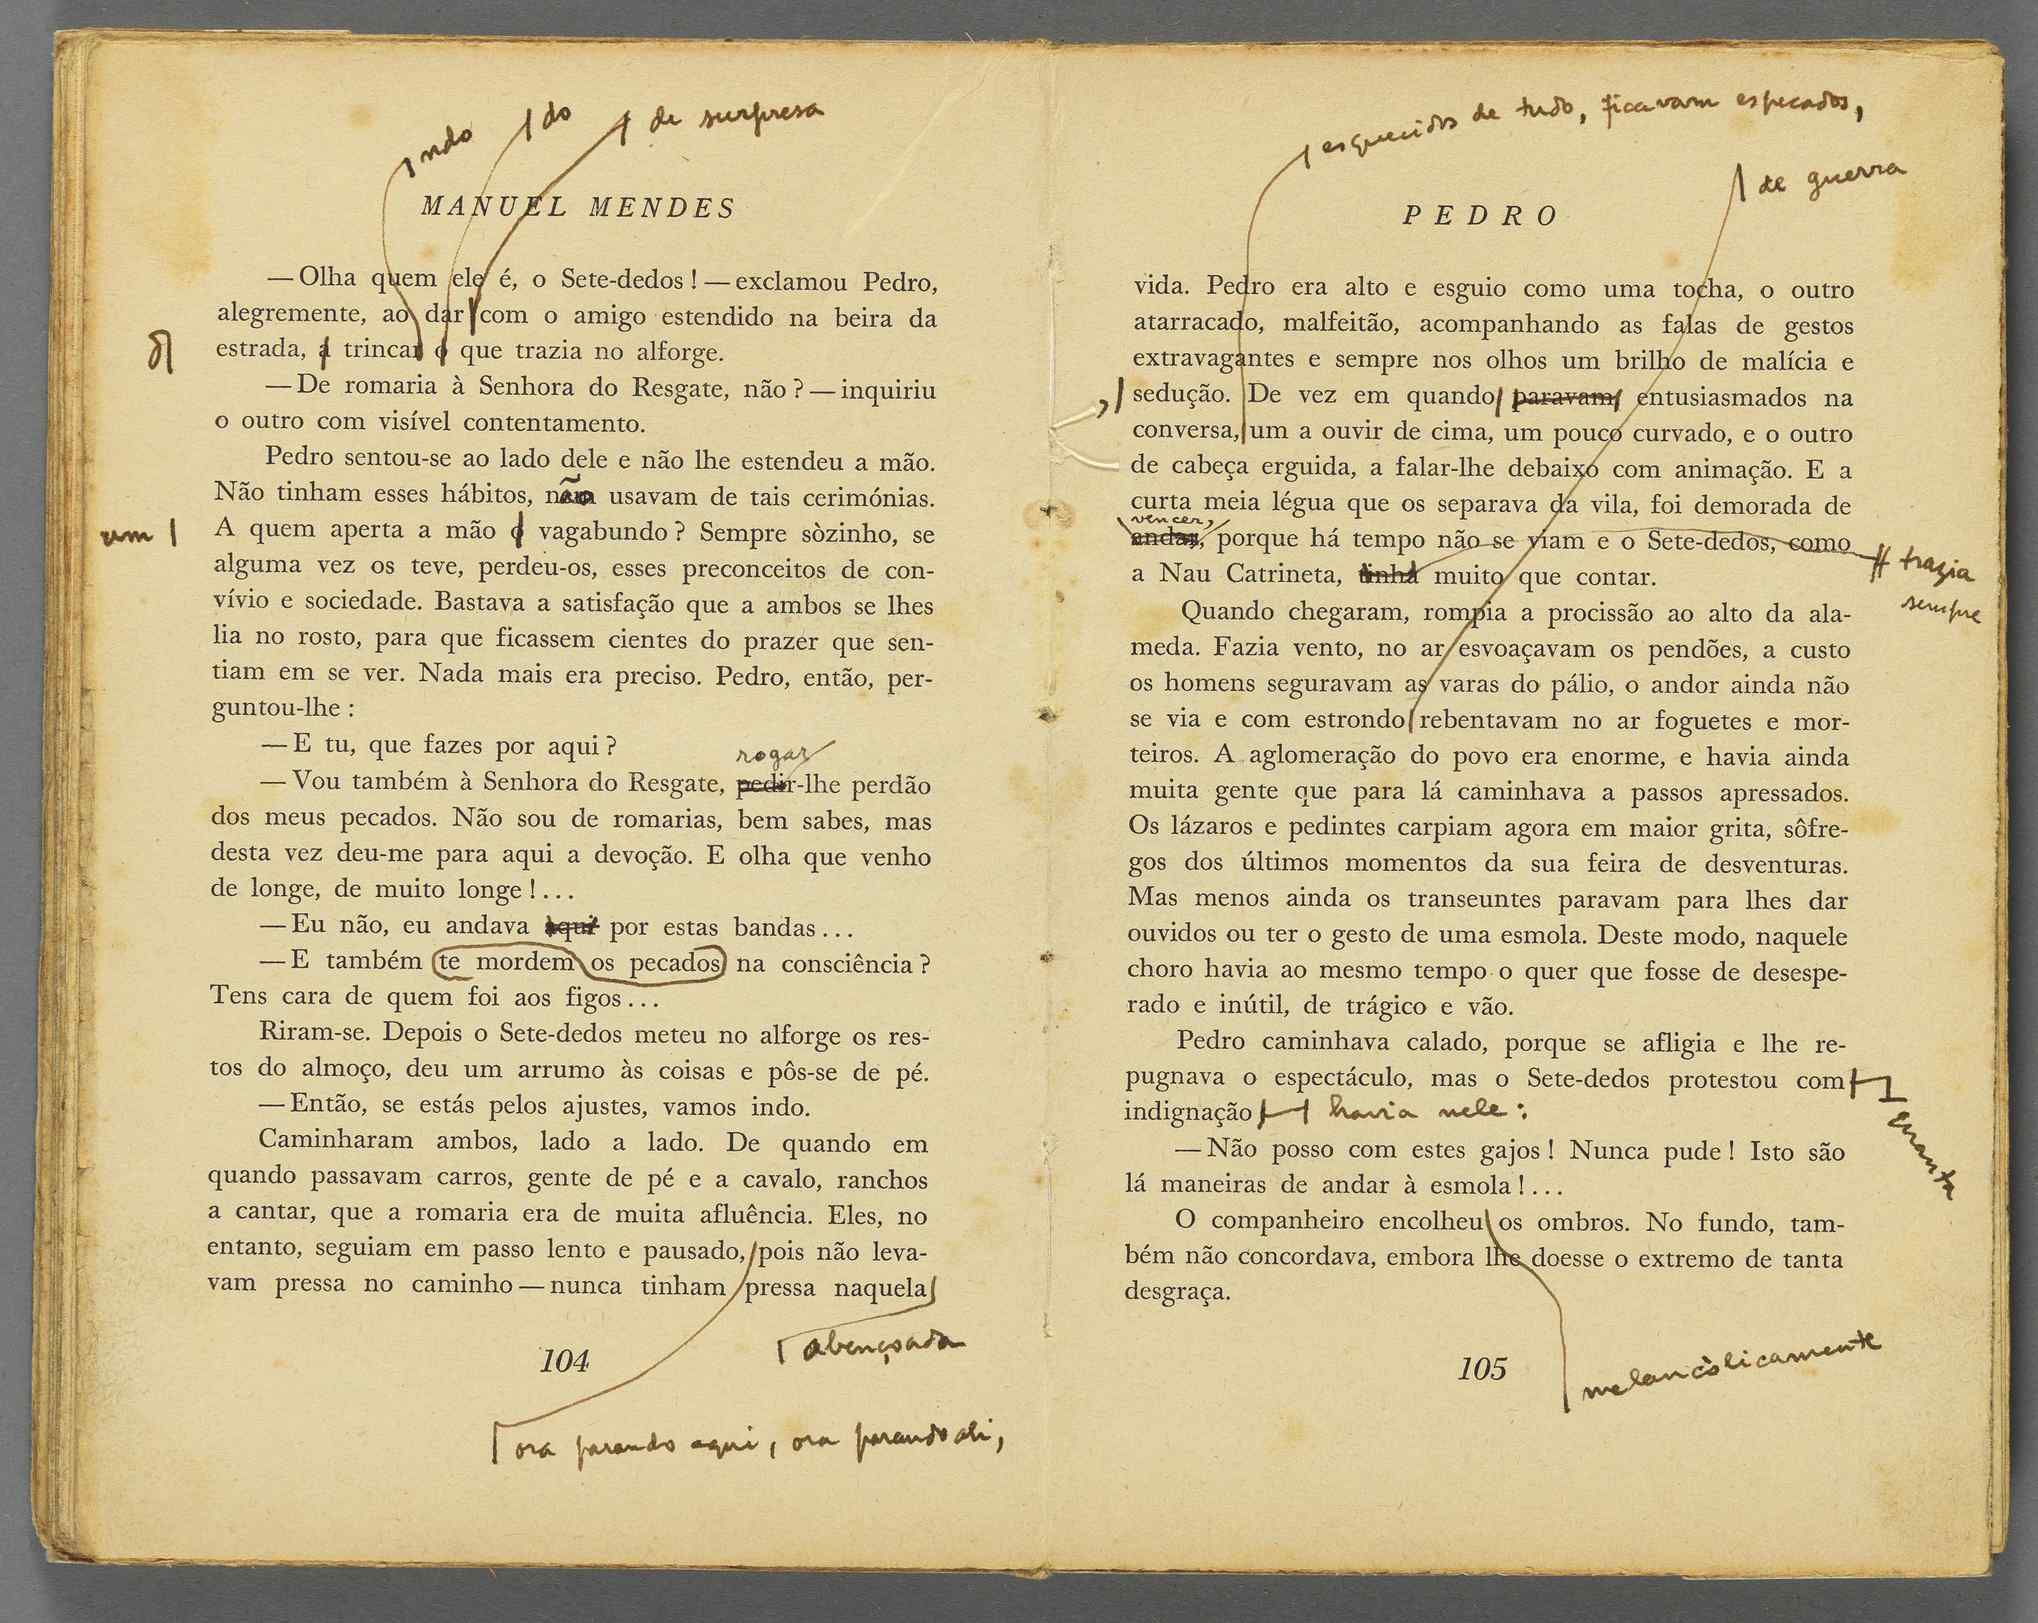 ndo
do
de surpresa
MANUEL MENDES
—Olha quem ele é, o Sete-dedos! — exclamou Pedro,
alegremente, ao dar com o amigo estendido na beira da
estrada, a trincar o que trazia no alforge.
—De romaria à Senhora do Resgate, não? — inquiriu
o outro com visível contentamento.
Pedro sentou-se ao lado dele e não lhe estendeu a mão.
Não tinham esses hábitos, não usavam de tais cerimónias.
um
A quem aperta a mão o vagabundo? Sempre sòzinho, se
alguma vez os teve, perdeu-os, esses preconceitos de con-
vívio e sociedade. Bastava a satisfação que a ambos se lhes
lia no rosto, para que ficassem cientes do prazer que sen-
tiam em se ver. Nada mais era preciso. Pedro, então, per-
guntou-lhe:
—E tu, que fazes por aqui?
rogar
—Vou também à Senhora do Resgate, pedir-lhe perdão
dos meus pecados. Não sou de romarias, bem sabes, mas
desta vez deu-me para aqui a devoção. E olha que venho
de longe, de muito longe!...
—Eu não, eu andava aqui por estas bandas...
—E também te mordem os pecados na consciência?
Tens cara de quem foi aos figos...
Riram-se. Depois o Sete-dedos meteu no alforge os res-
tos do almoço, deu um arrumo às coisas e pôs-se de pé.
—Então, se estás pelos ajustes, vamos indo.
Caminharam ambos, lado a lado. De quando em
quando passavam carros, gente de pé e a cavalo, ranchos
a cantar, que a romaria era de muita afluência. Eles, no
entanto, seguiam em passo lento e pausado, pois não leva-
vam pressa no caminho — nunca tinham pressa naquela
abençoada
104
ora parando aqui, ora parando ali,
esquecidos de tudo, ficavam especados,
de guerra
PEDRO
vida. Pedro era alto e esguio como uma tocha, o outro
atarracado, malfeitão, acompanhando as falas de gestos
extravagantes e sempre nos olhos um brilho de malícia e
,
sedução. De vez em quando paravam entusiasmados na
conversa, um a ouvir de cima, um pouco curvado, e o outro
de cabeça erguida, a falar-lhe debaixo com animação. E a
curta meia légua que os separava da vila, foi demorada de
vencer,
andar, porque há tempo não se viam e o Sete-dedos, como
trazia
sempre
a Nau Catrineta, tinha muito que contar.
Quando chegaram, rompia a procissão ao alto da ala-
meda. Fazia vento, no ar esvoaçavam os pendões, a custo
os homens seguravam as varas do pálio, o andor ainda não
se via e com estrondo rebentavam no ar foguetes e mor-
teiros. A aglomeração do povo era enorme, e havia ainda
muita gente que para lá caminhava a passos apressados.
Os lázaros e pedintes carpiam agora em maior grita, sôfre-
gos dos últimos momentos da sua feira de desventuras.
Mas menos ainda os transeuntes paravam para lhes dar
ouvidos ou ter o gesto de uma esmola. Deste modo, naquele
choro havia ao mesmo tempo o quer que fosse de desespe-
rado e inútil, de trágico e vão.
Pedro caminhava calado, porque se afligia e lhe re-
pugnava o espectáculo, mas o Sete-dedos protestou com
quanta
indignação havia nele:
—Não posso com estes gajos! Nunca pude! Isto são
lá maneiras de andar à esmola!...
O companheiro encolheu os ombros. No fundo, tam-
bém não concordava, embora lhe doesse o extremo de tanta
desgraça.
105
melancòlicamente